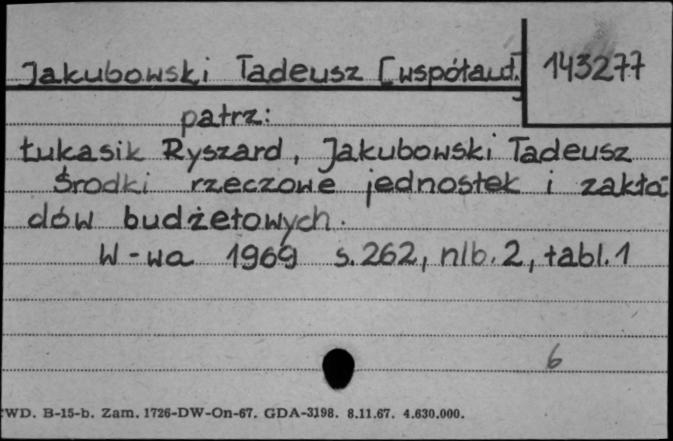 Jakubowski Tadeusz [współaut.] 143277
patrz:
Łukasik Ryszard, Jakubowski Tadeusz
Środki rzeczowe jednostek i zakła-
dów budżetowych.
W-wa 1969 s. 262, nlb. 2, tabl. 1
6
WD. B-15-b. Zam. 1726-DW-On-67. GDA-3198. 8.11.67. 4.630.000.